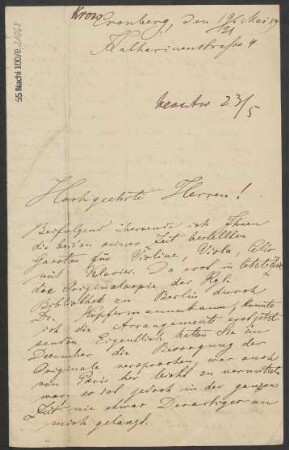 Kross
Cronberg, den 19/21 Mai 9
Katharinenstraße 4
55 Nachl 100/B,
beantw 23/5
Hochgeehrte Herren!
Beifolgend übersende ich Ihnen
die beiden seiner Zeit bestellten
für Violine, Viola, Cello
mit Klavier. Da erst in letzter Zeit
die Originalcopie der Kgl.
Bibliothek zu Berlin durch
Dr. Kopfermann kam, konnte
ich die Arrangements erst jetzt
senden. Eigentlich hatten Sie im
Dezember die Besorgung der
Originale versprochen, war auch
von Paris her leicht zu
war; es ist jedoch in der ganzen
Zeit nie etwas Derartiges an
mich gelangt.